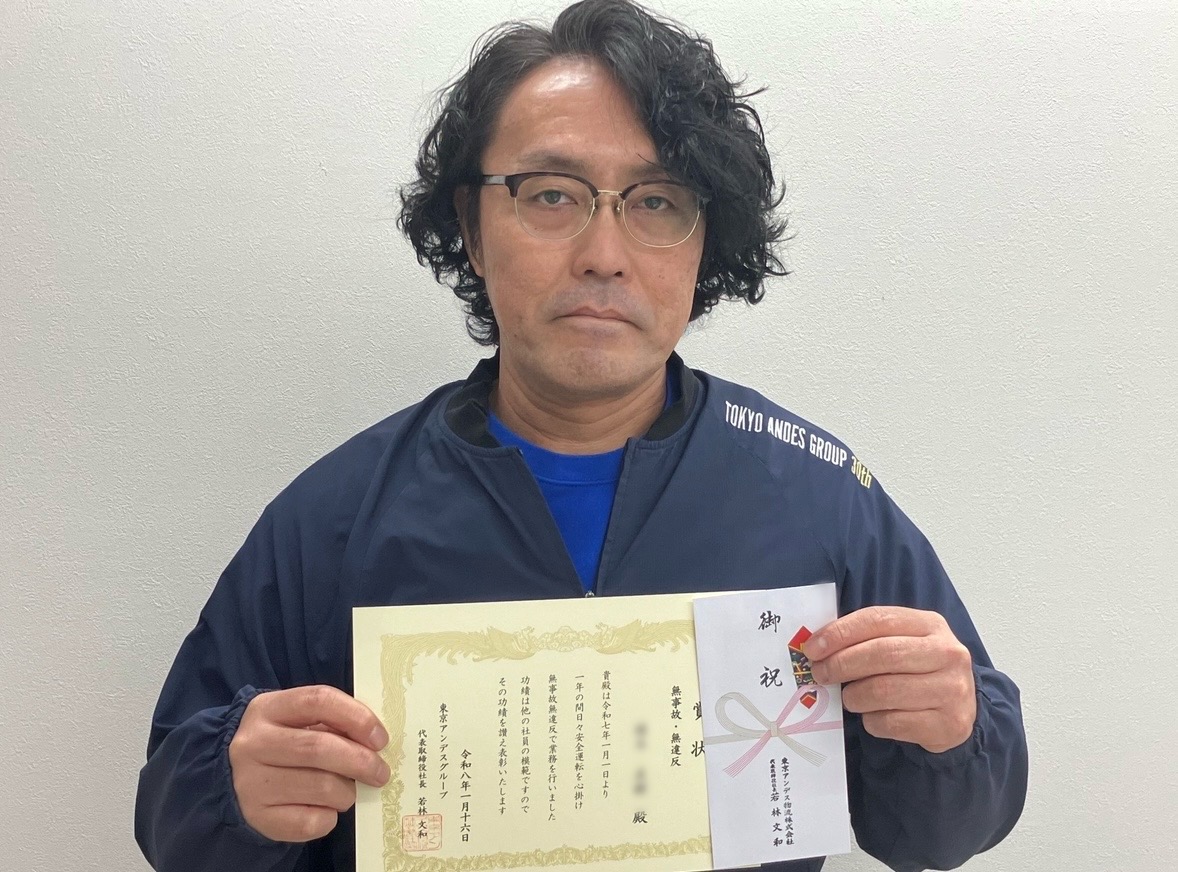 TOKYO ANDES GROUP 30th
賞状
無事故・無違反
殿
貴殿は令和七年一月一日より
一年の間日々安全運転を心掛け
無事故無違反で業務を行いました
功績は他の社員の模範ですので
その功績を讃え表彰いたします
令和八年一月十六日
東京アンデスグループ
代表取締役社長 若林文和
御祝
東京アンデス物流株式会社
代表取締役社長 若林文和